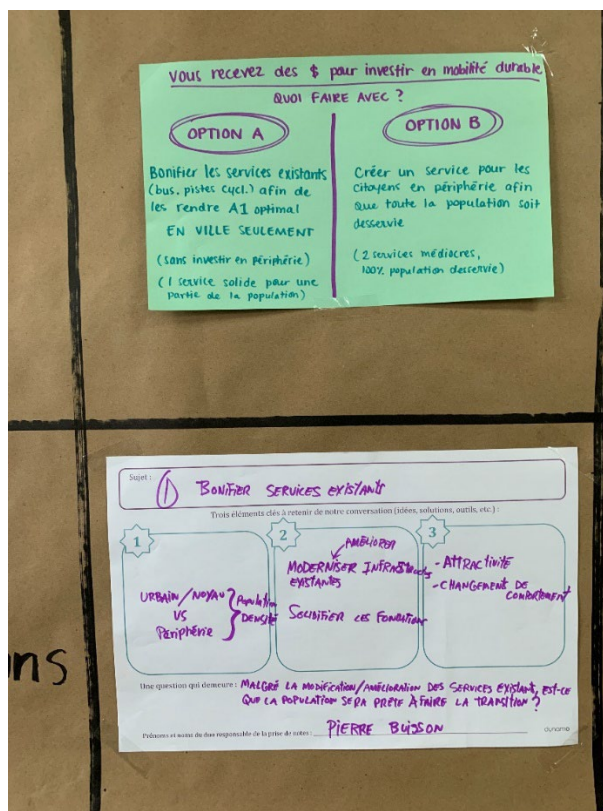 Vous recevez des $ pour investir en mobilité durable
QUOI FAIRE AVEC ?
OPTION A
Bonifier les services existants
(bus, pistes cycl.) afin de
les rendre A1 optimal
EN VILLE SEULEMENT
(sans investir en périphérie)
(1 service solide pour une
partie de la population)
OPTION B
Créer un service pour les
citoyens en périphérie afin
que toute la population soit
desservie
(2 services médiocres,
100% population desservie)
ns
Sujet : 1 BONIFIER SERVICES EXISTANTS
Trois éléments clés à retenir de notre conversation (idées, solutions, outils, etc.) :
1
URBAIN/NOYAU
VS
Périphérie
Population
DENSITÉ
2
AMÉLIORER
MODERNISER INFRASTRUCTS
EXISTANTES
SOLIDIFIER LES FONDATION
3
- ATTRACTIVITÉ
- CHANGEMENT DE
COMPORTEMENT
Une question qui demeure : MALGRÉ LA MODIFICATION/AMÉLIORATION DES SERVICES EXISTANT, EST-CE
QUE LA POPULATION SERA PRÊTE À FAIRE LA TRANSITION ?
Prénoms et noms du duo responsable de la prise de notes : PIERRE BUISSON
dynamo